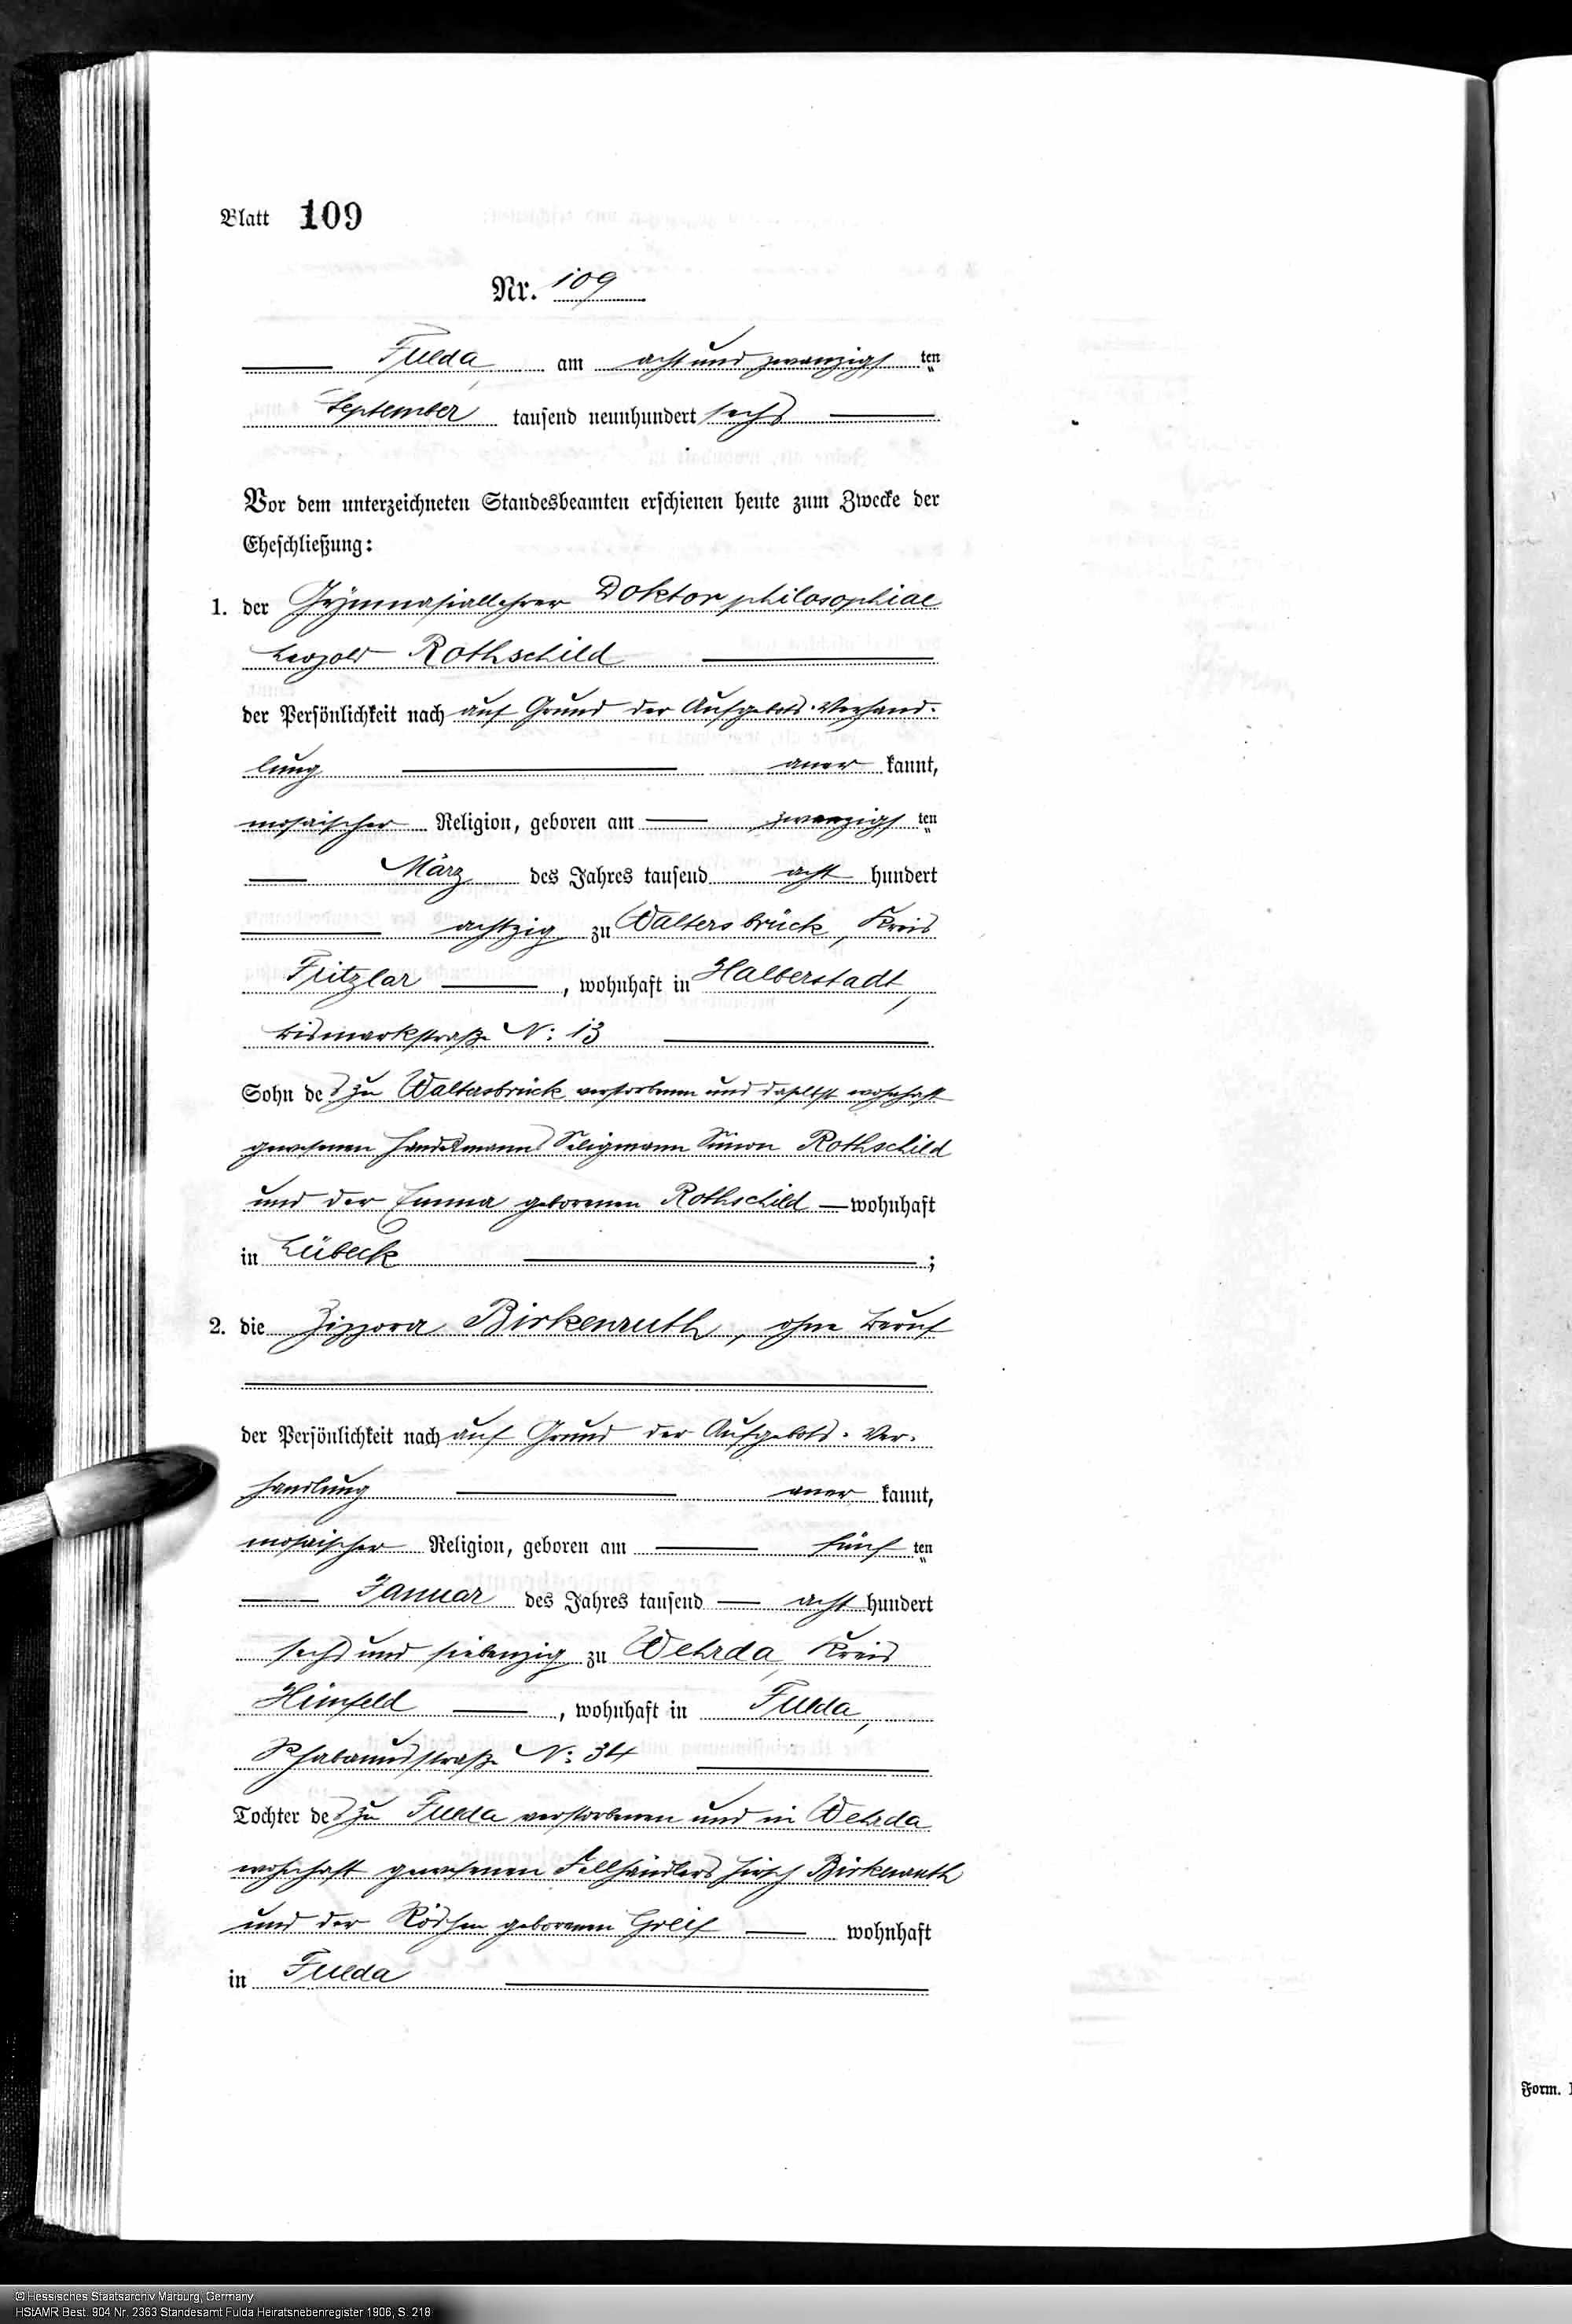 Blatt 109
Nr. 109
Fulda, am acht und zwanzigs ten
September tausend neunhundert sechs
Vor dem unterzeichneten Standesbeamten erschienen heute zum Zwecke der
Eheschließung:
1. der Gymnasiallehrer Doktor philosophiae
Leopold Rothschild
der Persönlichkeit nach auf Grund der Aufgebots-Verhand-
lung aner kannt,
mosaischer Religion, geboren am zwanzigs ten
März des Jahres tausend acht hundert
achtzig zu Waltersbrück, Kreis
Fritzlar, wohnhaft in Halberstadt,
Bismarkstraße No: 13
Sohn des zu Waltersbrück verstorbenen und daselbst wohnhaft
gewesenen Handelsmanns Seligmann Simon Rothschild
und der Emma geborenen Rothschild wohnhaft
in Lübeck ;
2. die Zippora Birkenruth, ohne Beruf
der Persönlichkeit nach auf Grund der Aufgebots-Ver-
handlung aner kannt,
mosaischer Religion, geboren am fünf ten
Januar des Jahres tausend acht hundert
sechs und siebenzig zu Wehrda, Kreis
Hünfeld, wohnhaft in Fulda,
Rhabanusstraße No: 34
Tochter des zu Fulda verstorbenen und in Wehrda
wohnhaft gewesenen Fellhändlers Hirsch Birkenruth
und der Röschen geborenen Greif wohnhaft
in Fulda
Form.
© Hessisches Staatsarchiv Marburg, Germany
HStAMR Best. 904 Nr. 2363 Standesamt Fulda Heiratsnebenregister 1906, S. 218